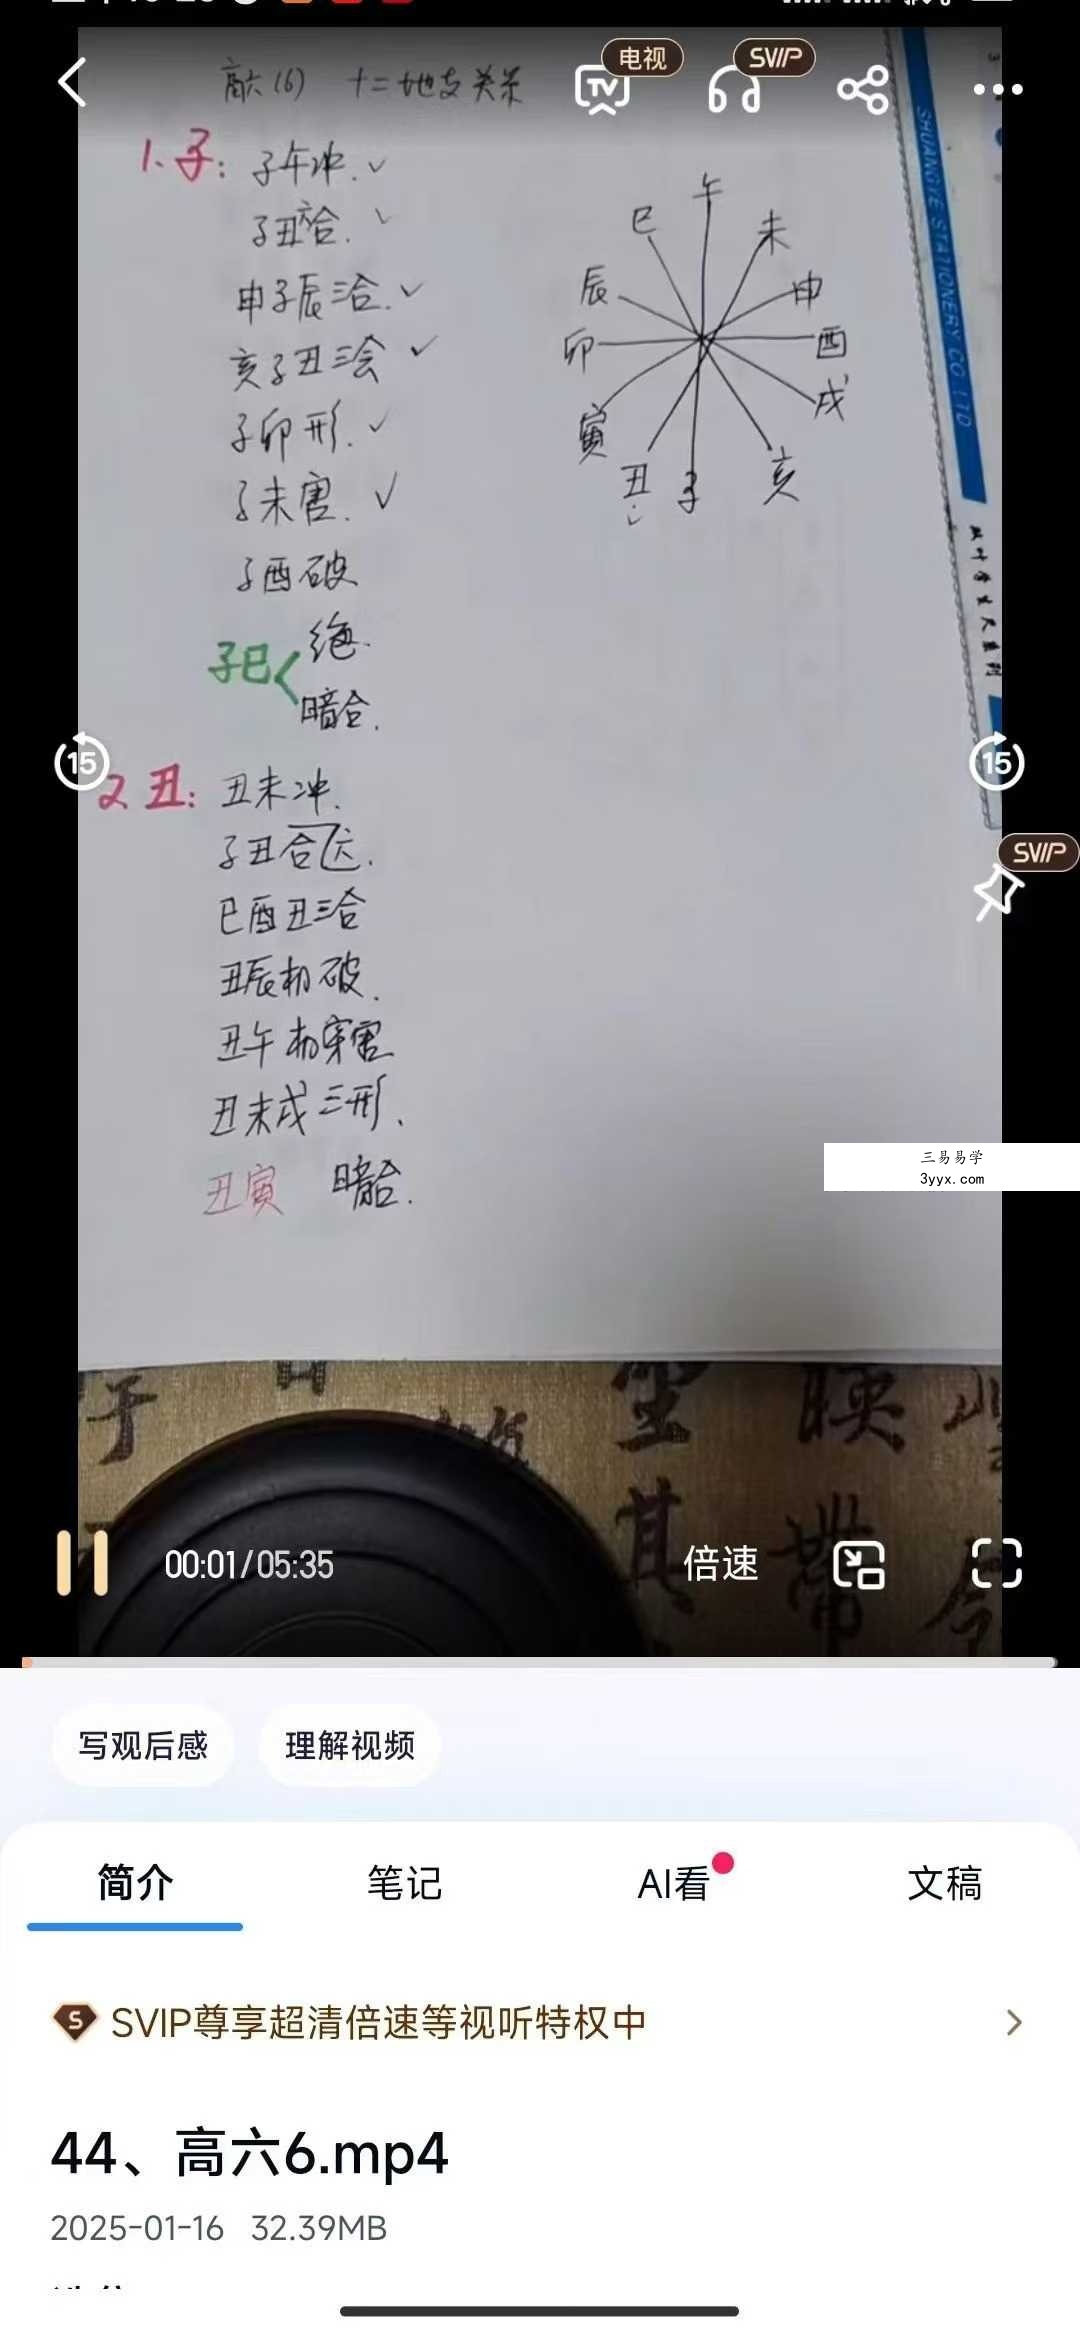 电视
SVIP
TV
高六(6) 十二地支关系
1、子: 子午冲.✓
子丑六合.✓
申子辰三合.✓
亥子丑三会 ✓
子卯形.✓
子未害.✓
子酉破
子巳〈 绝.
暗合.
午
巳
未
辰
申
卯
酉
寅
戌
丑
子
亥
SHUANGYE STATIONERY CO.LTD
15
15
SVIP
2 丑: 丑未冲.
子丑合化土.
巳酉丑三合
丑辰相破.
丑午相穿害
丑未戌三形.
丑寅 暗合.
三易易学
3yyx.com
其
00:01/05:35
倍速
写观后感
理解视频
简介
笔记
AI看
文稿
S
SVIP尊享超清倍速等视听特权中
44、高六6.mp4
2025-01-16 32.39MB